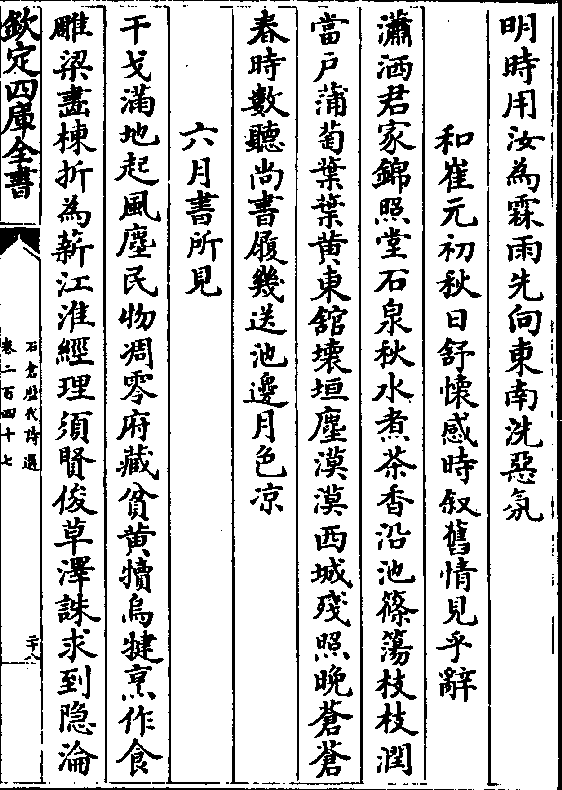 明時用汝為霖雨先向東南洗惡氛
和崔元初秋日舒懐感時叙舊情見乎辭
瀟洒君家錦照堂石泉秋水煮茶香沿池篠簜枝枝潤
當户蒲萄葉葉黄東舘壊垣塵漠漠西城殘照晚蒼蒼
春時數聽尚書履幾送池邊月色凉
六月書所見
干戈滿地起風塵民物凋零府藏貧黄犢烏犍烹作食
雕梁畫棟折為薪江淮經理須賢俊草澤誅求到隐淪
欽定四庫全書
石倉歴代詩選
卷二百四十七
二十八